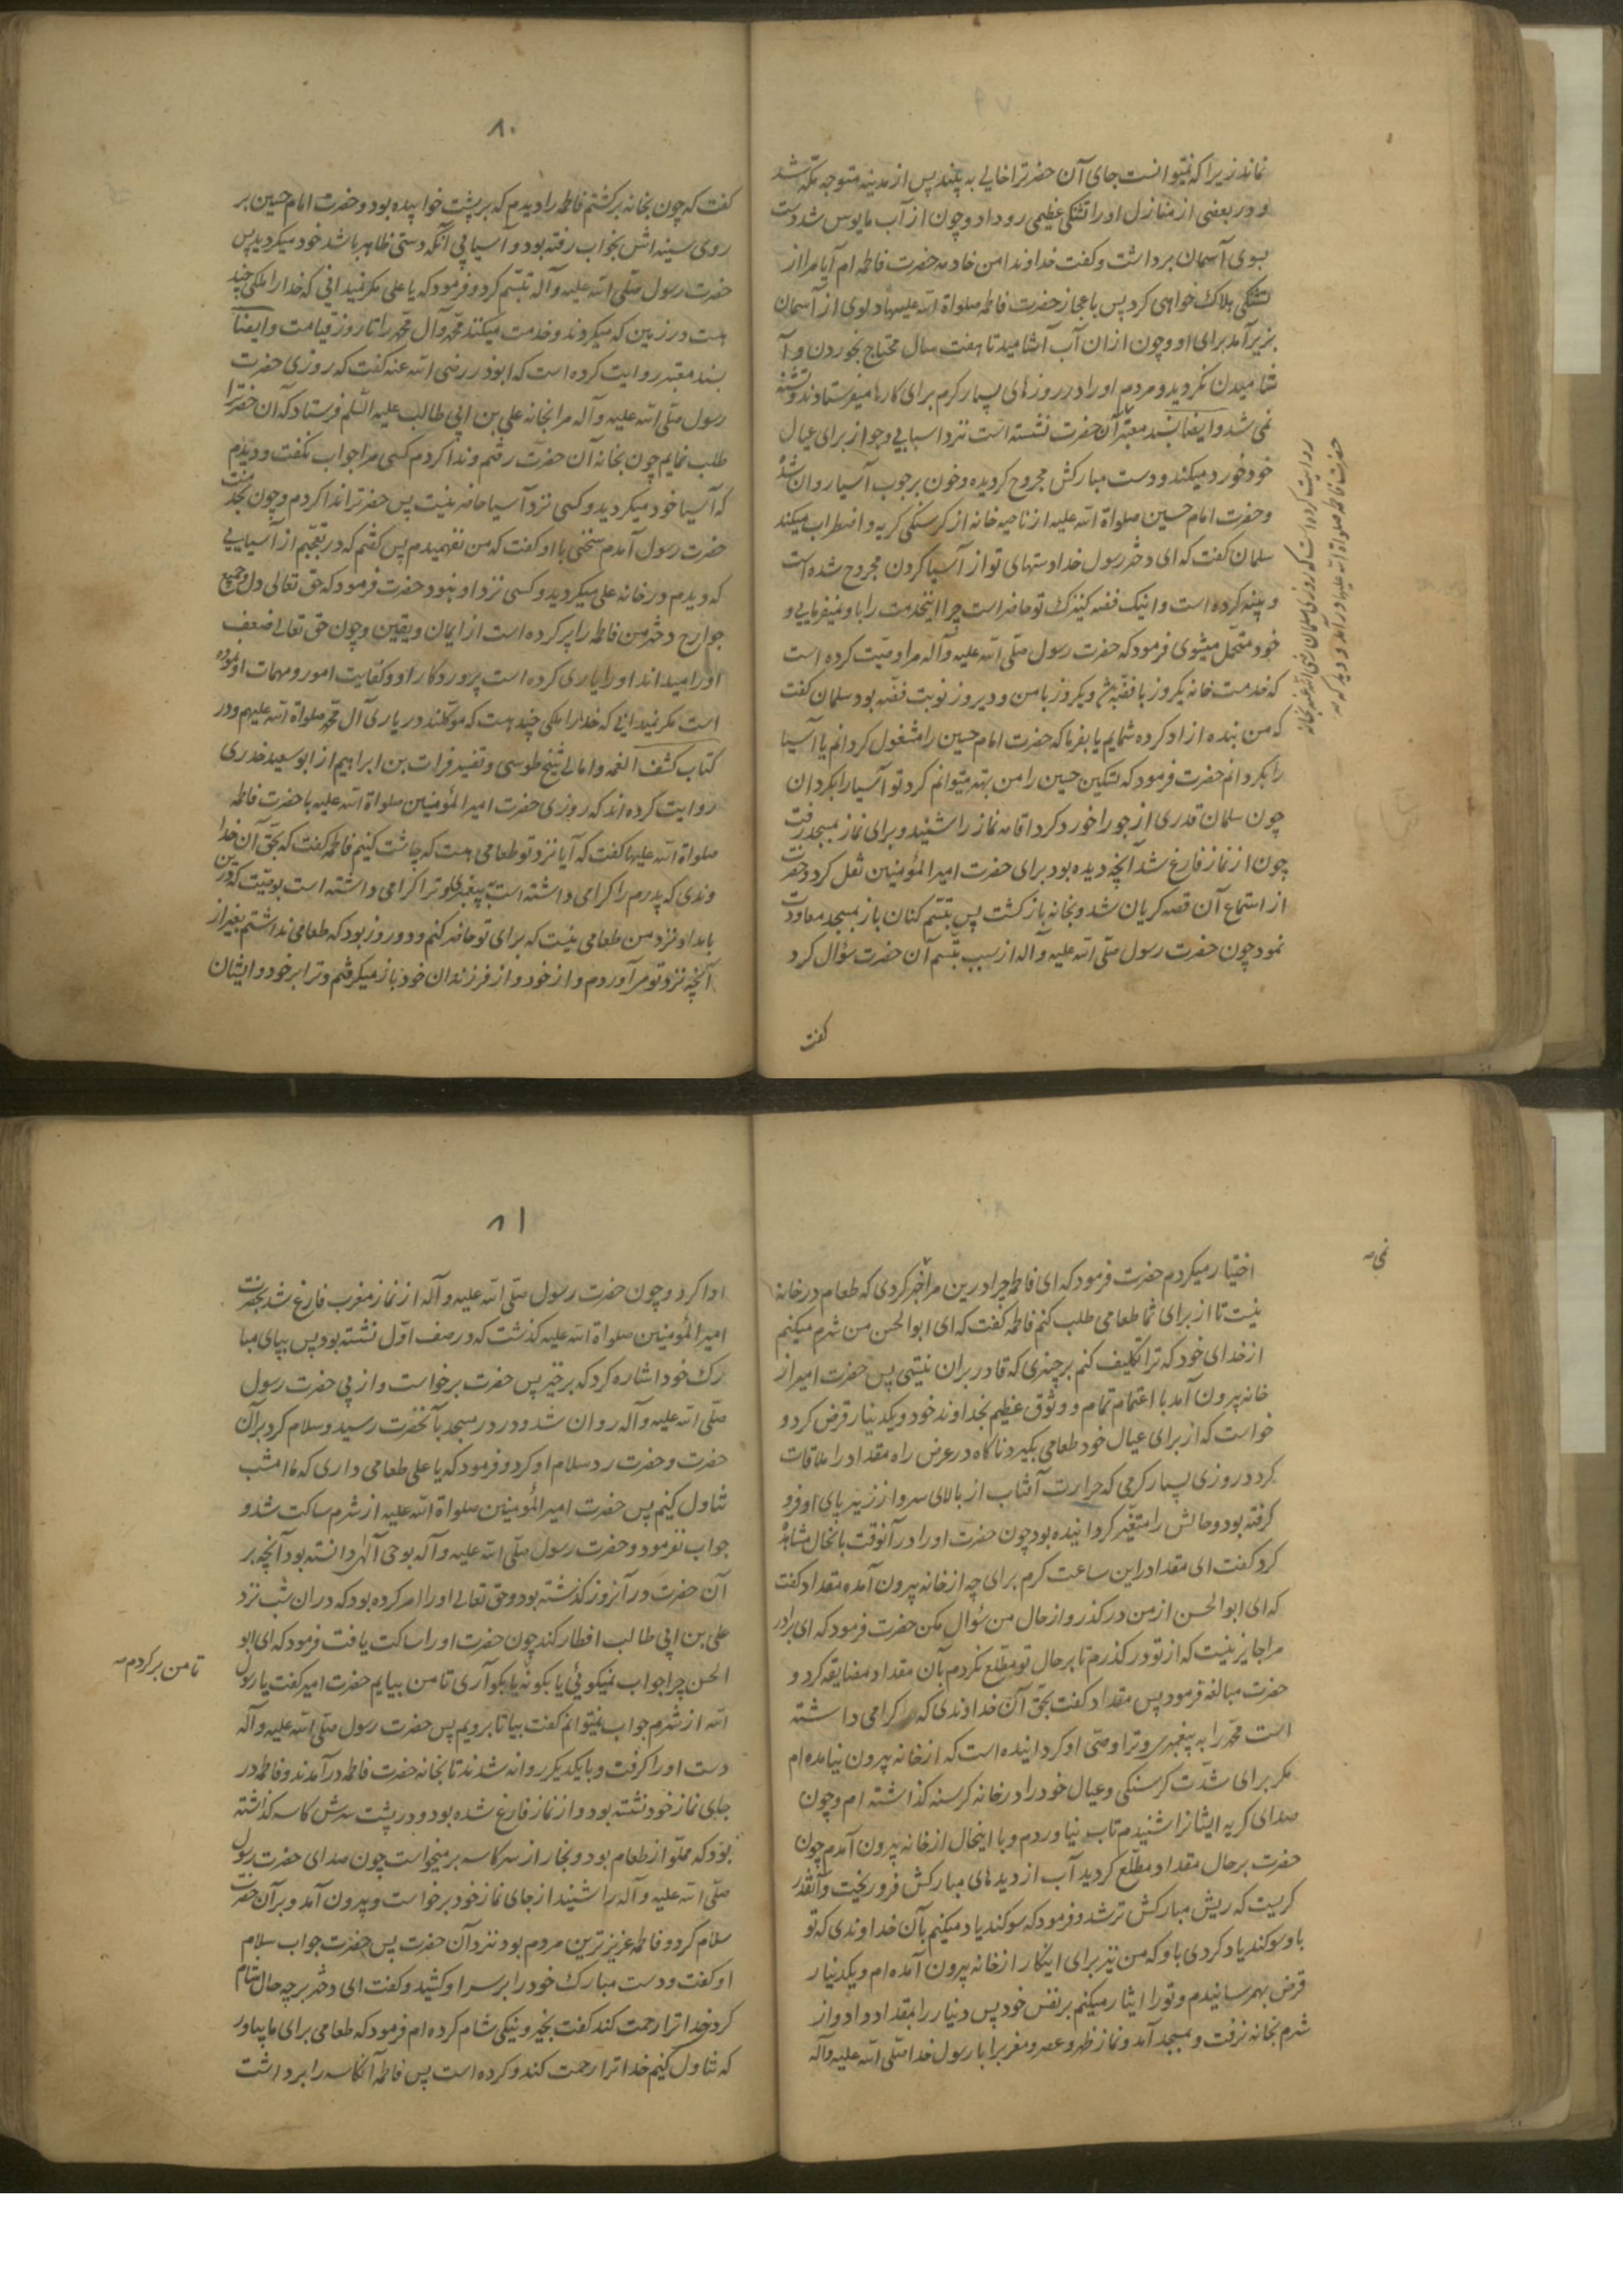 نماند زیرا که نمیتوانست جای آن حضرترا خالی به بیند پس از مدینه متوجه مکه شد
و در بعضی از منازل او را تشنکی عظیمی رو داد و چون از آب مایوس شد دست
بسوی آسمان برداشت و کفت خداوندا من خادمه حضرت فاطمه ام آیا مرا از
تشنکی هلاک خواهی کرد پس باعجاز حضرت فاطمه صلواة الله علیها دلوی از آسمان
بزیر آمد برای او و چون از ان آب آشامید تا هفت سال محتاج بخوردن و آ
شامیدن نکردید و مردم او را در روزهای بسیار کرم برای کارها میفرستادند و تشنه
نمی شد و ایضا بسند معتبر آن حضرت نشسته است نزد اسیایی و جو از برای عیال
خود خورد میکند و دست مبارکش مجروح کردیده و خون بر چوب آسیا روان شده
و حضرت امام حسین صلواة الله علیه از ناحیه خانه از کرسنکی کریه و اضطراب میکند
سلمان کفت که ای دختر رسول خدا دستهای تو از آسیا کردن مجروح شده است
و پینه کرده است و اینک فضه کنیزک تو حاضر است چرا اینخدمت را باو نمیفرمایی و
خود متحمل میشوی فرمود که حضرت رسول صلی الله علیه و آله مرا وصیت کرده است
که خدمت خانه یکروز با فضه و یکروز با من و دیروز نوبت فضه بود سلمان کفت
که من بنده ازاد کرده شمایم یا بفرما که حضرت امام حسین را مشغول کردانم یا آسیا
را بکردانم حضرت فرمود که تسکین حسین را من بهتر میتوانم کرد تو آسیا را بکردان
چون سلمان قدری از جو را خورد کرد اقامه نماز را شنید و برای نماز بمسجد رفت
چون از نماز فارغ شد آنچه دیده بود برای حضرت امیرالمؤمنین نقل کرد و حضرت
از استماع آن قصه کریان شد و بخانه باز کشت پس تبسم کنان باز بمسجد معاودت
نمود چون حضرت رسول صلی الله علیه و آله از سبب تبسم آن حضرت سؤال کرد
کفت
روایت کرده است که روزی سلمان رضی الله عنه بخانه
حضرت فاطمه صلواة الله علیها در آمد و دید که
۸۰
کفت که چون بخانه برکشتم فاطمه را دیدم که بر پشت خوابیده بود و حضرت امام حسین بر
روی سینه اش بخواب رفته بود و آسیا بی آنکه دستی ظاهر باشد خود میکردید پس
حضرت رسول صلی الله علیه و آله تبسم کرد و فرمود که یا علی مکر نمیدانی که خدا را ملکی چند
هست در زمین که میکردند و خدمت میکنند محمد و آل محمد را تا روز قیامت و ایضا
بسند معتبر روایت کرده است که ابوذر رضی الله عنه کفت که روزی حضرت
رسول صلی الله علیه و آله مرا بخانه علی بن ابی طالب علیه السلم فرستاد که آن حضرترا
طلب نمایم چون بخانه آن حضرت رفتم و ندا کردم کسی مرا جواب نکفت و دیدم
که آسیا خود میکردید و کسی نزد آسیا حاضر نیست پس حضرترا ندا کردم و چون بخدمت
حضرت رسول آمدم سخنی با او کفت که من نفهمیدم پس کفتم که در تعجبم از آسیایی
که دیدم در خانه علی میکردید و کسی نزد او نبود حضرت فرمود که حق تعالی دل و جمیع
جوارح دختر من فاطمه را پر کرده است از ایمان و یقین و چون حق تعالی ضعف
او را میداند او را یاری کرده است پروردکار او و کفایت امور و مهمات او نموده
است مکر نمیدانی که خدا را ملکی چند هست که موکلند در یاری آل محمد صلواة الله علیهم و در
کتاب کشف الغمه و امالی شیخ طوسی و تفسیر فرات بن ابراهیم از ابو سعید خدری
روایت کرده اند که روزی حضرت امیرالمؤمنین صلواة الله علیه با حضرت فاطمه
صلواة الله علیها کفت که آیا نزد تو طعامی هست که چاشت کنیم فاطمه کفت که بحق آن خدا
وندی که پدرم را کرامی داشته است به پیغمبری و ترا کرامی داشته است بوصیت که درین
بامداد نزد من طعامی نیست که برای تو حاضر کنم و دو روز بود که طعامی نداشتم بغیر از
آنچه نزد تو مر آوردم و از خود و از فرزندان خود باز میکرفتم و ترا بر خود و ایشان
اختیار میکردم حضرت فرمود که ای فاطمه چرا درین مرا خبر کردی که طعام در خانه
نیست تا از برای شما طعامی طلب کنم فاطمه کفت که ای ابوالحسن من شرم میکنم
از خدای خود که ترا تکلیف کنم بر چیزی که قادر بر ان نیستی پس حضرت امیر از
خانه بیرون آمد با اعتمام تمام و وثوق عظیم بخداوند خود و یکدینار قرض کرد و
خواست که از برای عیال خود طعامی بکیرد ناکاه در عرض راه مقداد را ملاقات
کرد در روزی بسیار کرمی که حرارت آفتاب از بالای سر و از زیر پای او فرو
کرفته بود و حالش را متغیر کردانیده بود چون حضرت او را در آنوقت بانحال مشاهده
کرد کفت ای مقداد در این ساعت کرم برای چه از خانه بیرون آمده مقداد کفت
که ای ابوالحسن از من در کذر و از حال من سؤال مکن حضرت فرمود که ای برادر
مرا جایز نیست که از تو در کذرم تا بر حال تو مطلع نکردم بآن مقداد مضایقه کرد و
حضرت مبالغه فرمود پس مقداد کفت بحق آن خداوندی که کرامی داشته
است محمد را به پیغمبری و ترا وصی او کردانیده است که از خانه بیرون نیامده ام
مکر برای شدت کرسنکی و عیال خود را در خانه کرسنه کذاشته ام و چون
صدای کریه ایشانرا شنیدم تاب نیاوردم و با اینحال از خانه بیرون آمدم چون
حضرت بر حال مقداد مطلع کردید آب از دیدهای مبارکش فرو ریخت و آنقدر
کریست که ریش مبارکش تر شد و فرمود که سوکند یاد میکنم بآن خداوندی که تو
باو سوکند یاد کردی باو که من نیز برای اینکار از خانه بیرون آمده ام و یکدینار
قرض بهمرسانیدم و تو را ایثار میکنم بر نفس خود پس دینار را بمقداد داد و از
شرم بخانه نرفت و بمسجد آمد و نماز ظهر و عصر و مغرب را با رسول خدا صلی الله علیه و آله
۸۱
ادا کرد و چون حضرت رسول صلی الله علیه و آله از نماز مغرب فارغ شد بحضرت
امیرالمؤمنین صلواة الله علیه کذشت که در صف اول نشسته بود پس بپای مبا
رک خود اشاره کرد که برخیز پس حضرت برخواست و از پی حضرت رسول
صلی الله علیه و آله روان شد و در در مسجد بآنحضرت رسید و سلام کرد بر آن
حضرت و حضرت رد سلام او کرد و فرمود که یا علی طعامی داری که ما امشب
تناول کنیم پس حضرت امیرالمؤمنین صلواة الله علیه از شرم ساکت شد و
جواب نفرمود و حضرت رسول صلی الله علیه و آله بوحی آلهی دانسته بود آنچه بر
آن حضرت در آنروز کذشته بود و حق تعالی او را امر کرده بود که در ان شب نزد
علی بن ابی طالب افطار کند چون حضرت او را ساکت یافت فرمود که ای ابو
الحسن چرا جواب نمیکوئی یا بکو نه یا بکو آری تا من بیایم حضرت امیر کفت یا رسول
تا من برکردم
الله از شرم جواب نمیتوانم کفت بیا تا برویم پس حضرت رسول صلی الله علیه و آله
دست او را کرفت و با یکدیکر روانه شدند تا بخانه حضرت فاطمه در آمدند و فاطمه در
جای نماز خود نشسته بود و از نماز فارغ شده بود و در پشت سرش کاسه کذاشته
بود که مملو از طعام بود و بخار از سر کاسه بر میخواست چون صدای حضرت رسول
صلی الله علیه و آله را شنید از جای نماز خود برخواست و بیرون آمد و بر آن حضرت
سلام کرد و فاطمه عزیزترین مردم بود نزد آن حضرت پس حضرت جواب سلام
او کفت و دست مبارک خود را بر سر او کشید و کفت ای دختر بر چه حال شام
کرد خدا ترا رحمت کند کفت بخیر و نیکی شام کرده ام فرمود که طعامی برای ما بیاور
که تناول کنیم خدا ترا رحمت کند و کرده است پس فاطمه آنکاسه را برداشت